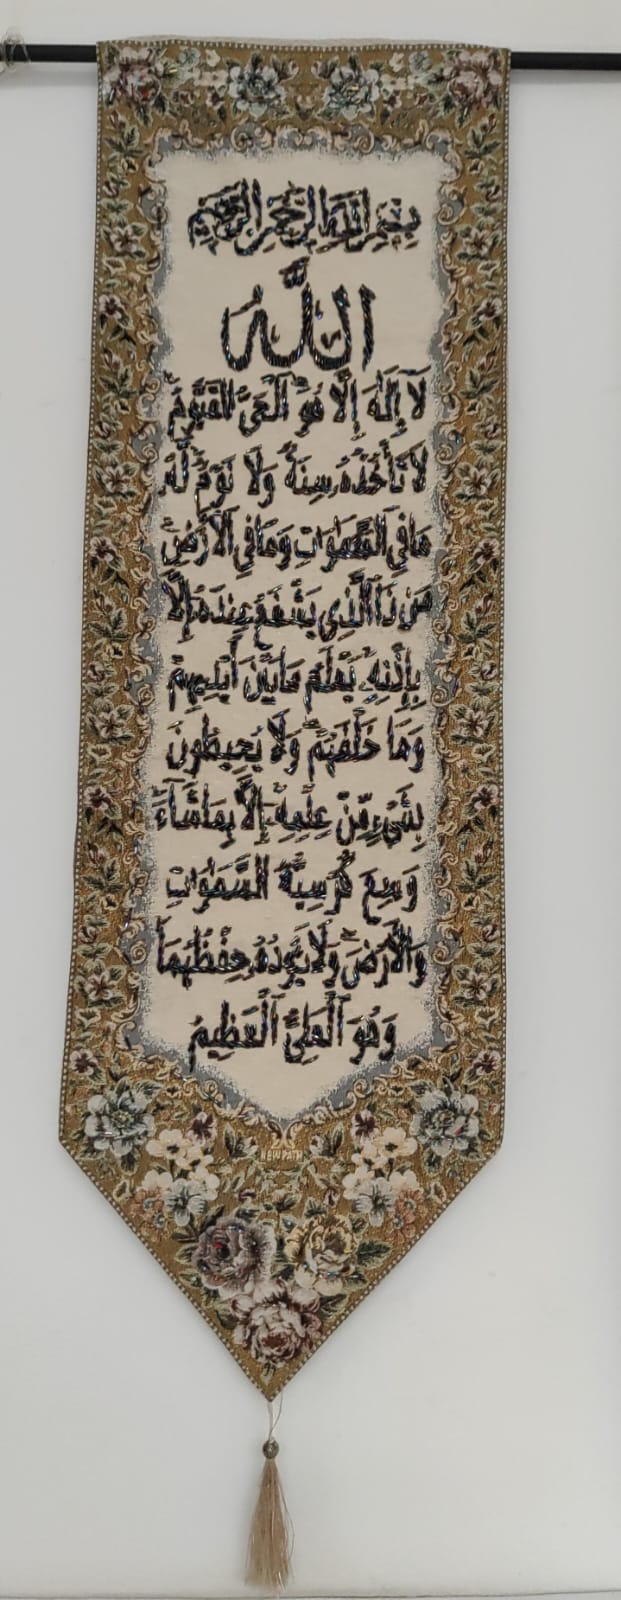 بِسْمِ اللهِ الرَّحْمٰنِ الرَّحِيمِ
اللَّهُ
لَآ إِلَٰهَ إِلَّا هُوَ ٱلْحَىُّ ٱلْقَيُّومُ
لَا تَأْخُذُهُۥ سِنَةٌ وَلَا نَوْمٌ لَّهُۥ
مَا فِى ٱلسَّمَٰوَٰتِ وَمَا فِى ٱلْأَرْضِ
مَن ذَا ٱلَّذِى يَشْفَعُ عِندَهُۥٓ إِلَّا
بِإِذْنِهِۦ يَعْلَمُ مَا بَيْنَ أَيْدِيهِمْ
وَمَا خَلْفَهُمْ وَلَا يُحِيطُونَ
بِشَىْءٍ مِّنْ عِلْمِهِۦٓ إِلَّا بِمَا شَآءَ
وَسِعَ كُرْسِيُّهُ السَّمَٰوَٰتِ
وَالْأَرْضَ وَلَا يَـُٔودُهُۥ حِفْظُهُمَا
وَهُوَ ٱلْعَلِىُّ ٱلْعَظِيمُ
NEW PATH